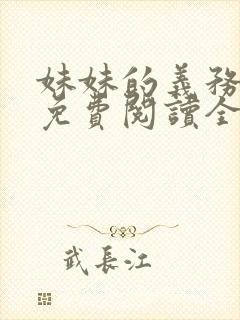 妹妹的義務
免費閱讀全
武長江